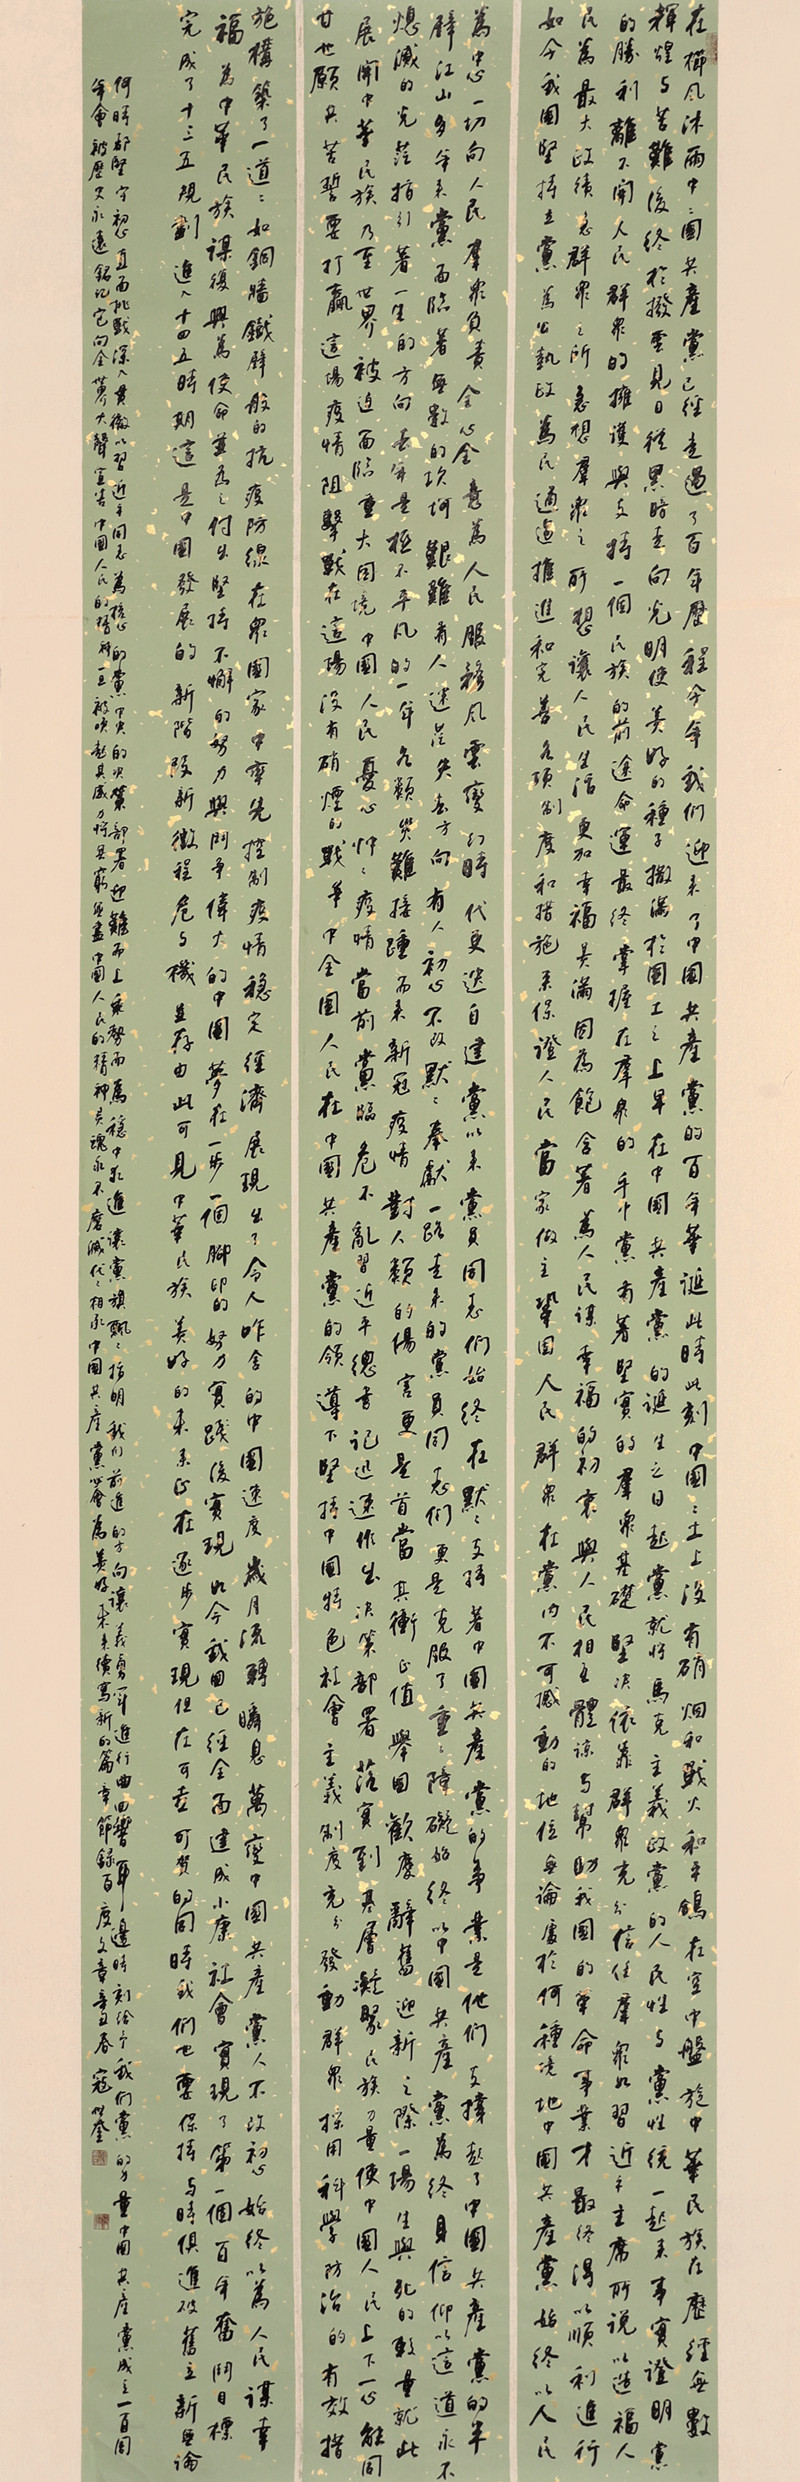 在櫛風沐雨中中國共產黨已經走過了百年歷程今年我們迎來了中國共產黨的百年華誕此時此刻中國國土上没有硝烟和戰火和平鴿在空中盤旋中華民族在歷經無數
輝煌与苦難後終於撥雲見日從黑暗走向光明使美好的種子撒滿於國土之上早在中國共產黨的誕生之日起黨就將馬克主義政黨的人民性与黨性統一起來事實證明黨
的勝利離不開人民群眾的擁護與支持一個民族的前途命運最終掌握在羣眾的手中黨有著堅實的羣眾基礎堅決依靠群眾充分信任羣眾如習近平主席所說以造福人
民為最大政績急群眾之所急想羣眾之所想讓人民生活更加幸福美滿因為飽含著為人民謀幸福的初衷與人民相互體諒与幫助我國的革命事業才最終得以順利進行
如今我國堅持立黨為公執政為民通過推進和完善各項制度和措施來保證人民當家做主鞏固人民群眾在黨内不可撼動的地位無論處於何種境地中國共產黨始終以人民
為中心一切向人民羣眾負責全心全意為人民服務風雲變幻時代更迭自建黨以來黨員同志們始終在默默支持著中國共產黨的事業是他們支撐起了中國共產黨的半
壁江山多年來黨面臨著無數的坎坷艱難有人迷茫失去方向有人初心不改默默奉獻一路走來的黨員同志們更是克服了重重障礙始終以中國共產黨為終身信仰以這道永不
熄滅的光芒指引著一生的方向去年是極不平凡的一年各類災難接踵而來新冠疫情對人類的傷害更是首當其衝正值舉國歡慶辭舊迎新之際一場生與死的較量就此
展開中華民族乃至世界被迫面臨重大困境中國人民憂心忡忡疫情當前黨臨危不亂習近平總書記迅速作出决策部署落實到基層凝聚民族力量使中國人民上下一心能同
甘也願共苦誓要打贏這場疫情阻擊戰在這場没有硝煙的戰爭中全國人民在中國共產黨的領導下堅持中國特色社會主義制度充分發動群眾採用科學防治的有效措
施構築了一道道如銅墻鐵壁般的抗疫防線在眾國家中率先控制疫情穩定經濟展現出了令人咋舌的中國速度歲月流轉瞬息萬變中國共產黨人不改初心始終以為人民謀幸
福為中華民族謀復興為使命並為之付出堅持不懈的努力與鬥爭偉大的中國夢在一步一個腳印的努力實踐後實現如今我國已經全面建成小康社會實現了第一個百年奮鬥目標
完成了十三五規劃進入十四五時期這是中國發展的新階段新徵程危与機並存由此可見中華民族美好的未來正在逐步實現但在可喜可賀的同時我們也要保持与時俱進破舊立新無論
何時都堅守初心直面挑戰深入貫徹以習近平同志為核心的黨中央的决策部署迎難而上乘勢而為穩中求進讓黨旗飄飄指明我們前進的方向讓義勇軍進行曲回響耳邊時刻給予我們黨的力量中國共產黨成立一百周
年會被歷史永遠銘記它向全世界大聲宣告中國人民的精神一旦被喚起其威力將是窮無盡中國人民的精神靈魂永不磨滅代代相承中國共產黨必會為美好未來續寫新的篇章節録百度文章辛丑春寇